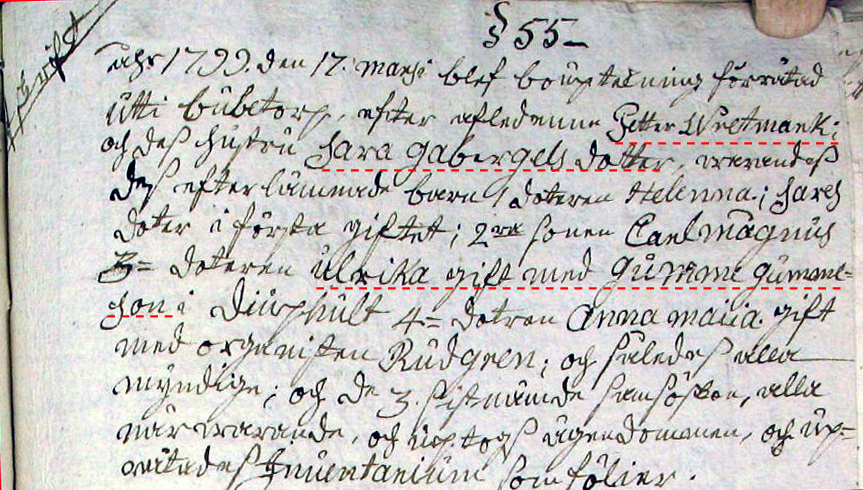 § 55
afskrift
åhr 1799. den 17. Marsi blef bouptekning förrätad
utti Bubetorp, efter afledenne Petter Wretmank;
och deß hustru Sara Gabergels dotter, warandeß
deß efterlämmade barn 1 doteren Helenna; hareß
doter i första giftet; 2ra sonen Carl Magnus
3= doteren Ulrika gift med Gumme Gumme=
son i Diurhult 4= dotren Anna Maiia. gift
med organisten Rudgren; och såledeß alla
myndige; och de 3. sistnämde samsösken, alla
närwarande, och uptogs ägendommen, och up=
rätadeß Inuentarium som fölier.